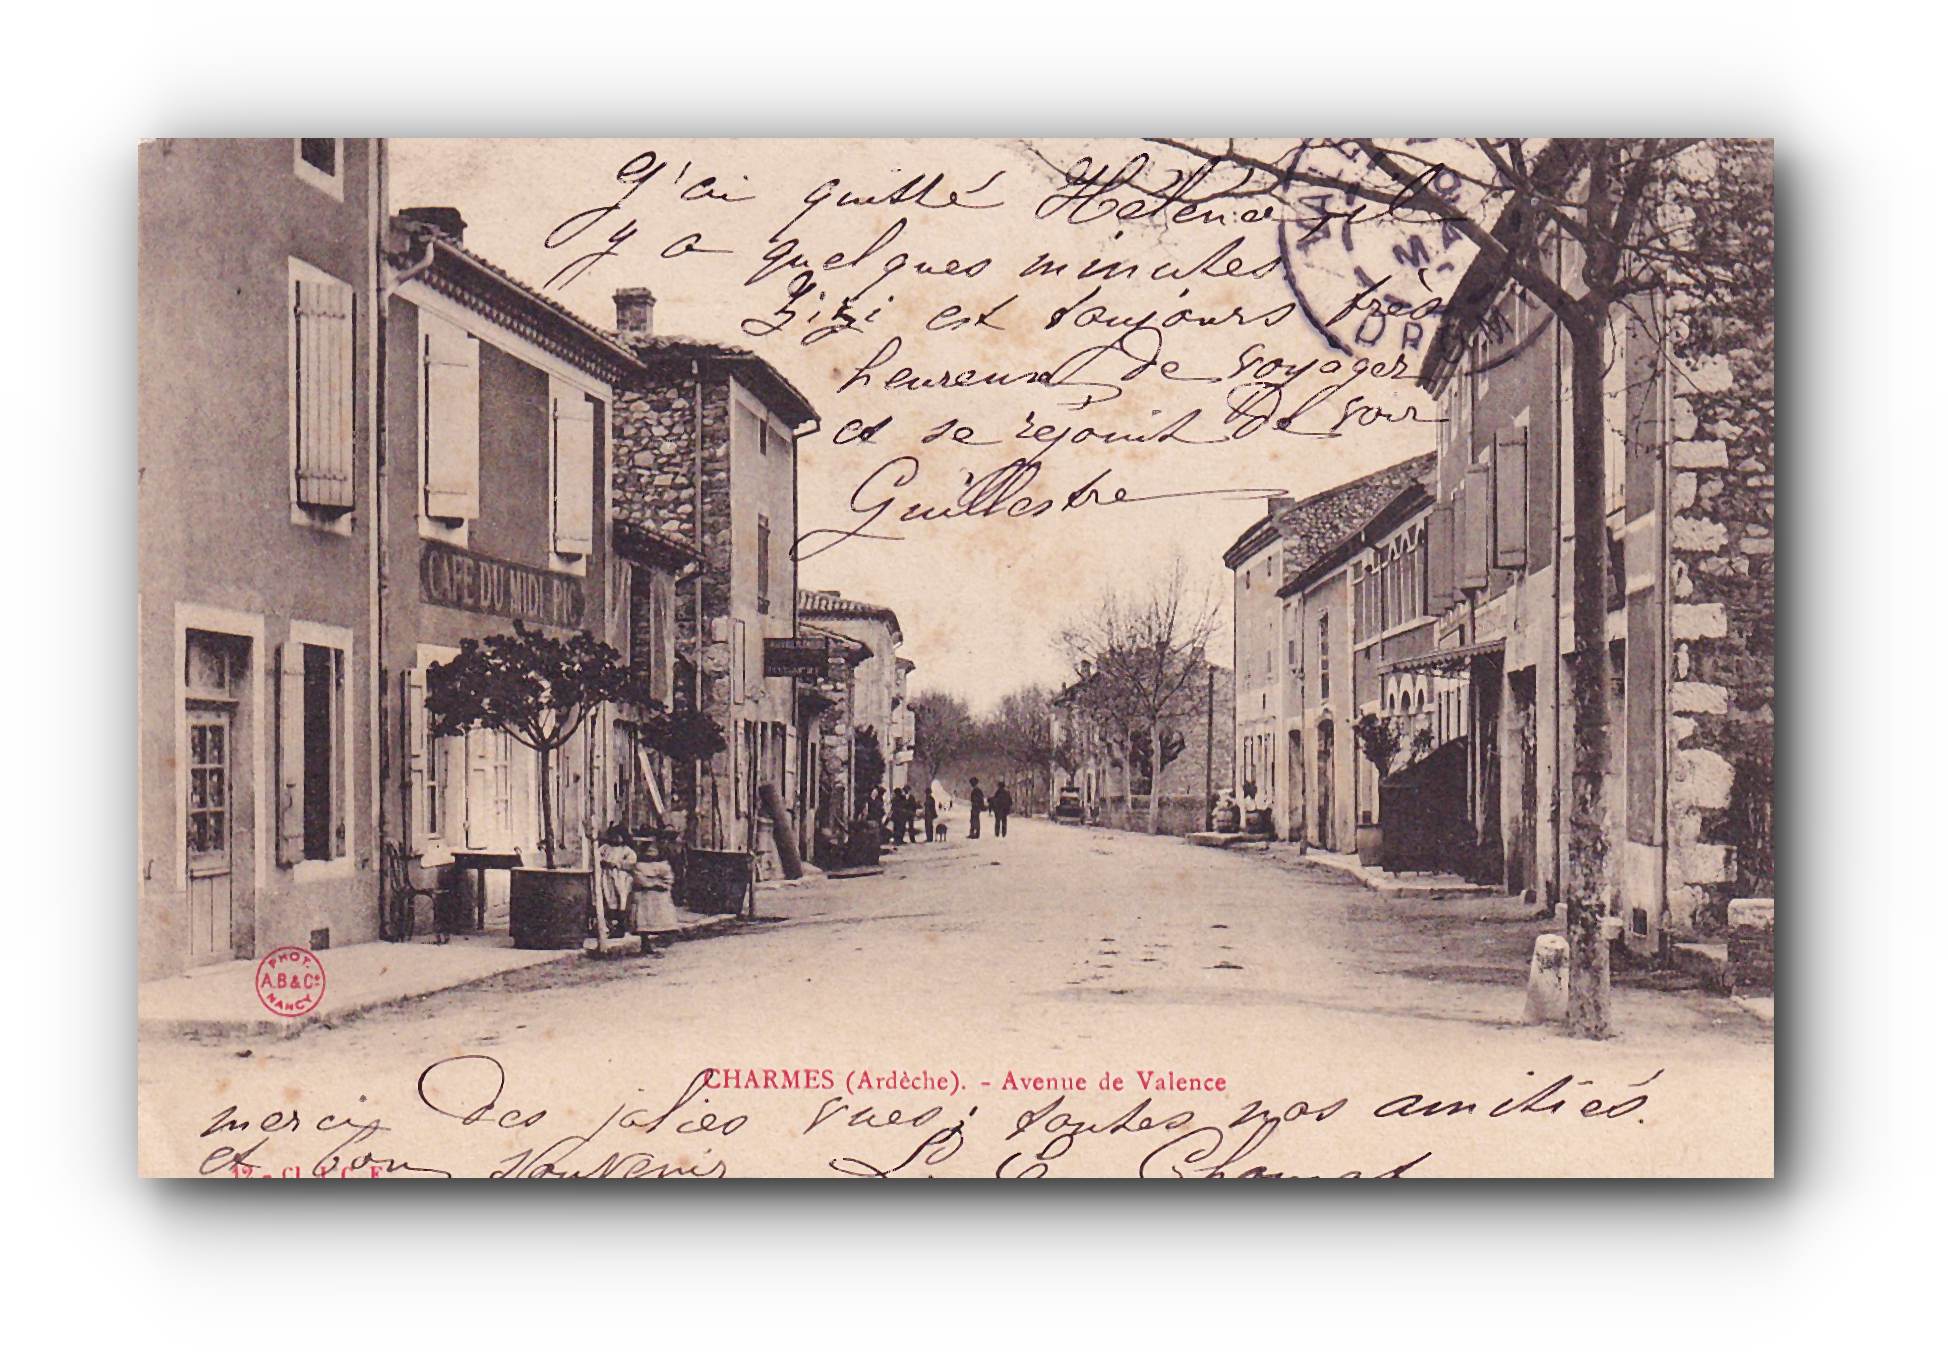 J'ai quitté Helena il
y a quelques minutes
Zizi est toujours très
heureux de voyager
et se réjouit de voir
Guillestre
VAL
MA
DROM
CAFE DU MIDI PIC
PHOT.
A.B & Cº
NANCY
CHARMES (Ardèche). - Avenue de Valence
merci des jolies vues; toutes nos amitiés.
et bon souvenir L. E. Chomat
12 - Cl. J. C. F.